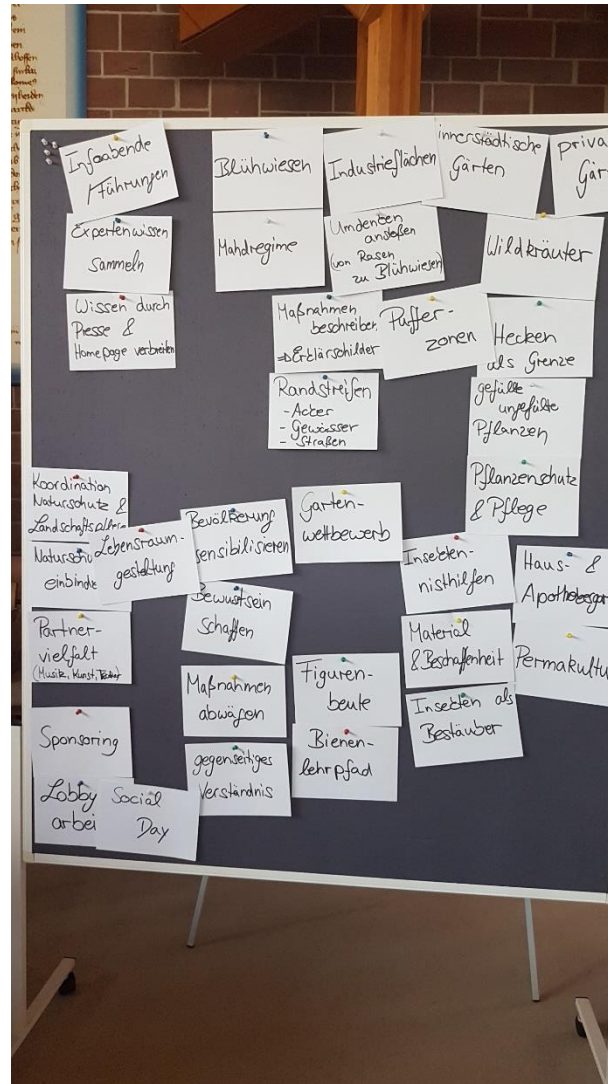 Infoabende
/Führungen
Expertenwissen
sammeln
Wissen durch
Presse &
Homepage verbreiten
Blühwiesen
Mahdregime
Industrieflächen
Umdenken
anstoßen
(von Rasen
zu Blühwiesen)
Maßnahmen
beschreiben
⇒Erklärschilder
Randstreifen
- Acker
- Gewässer
- Straßen
innerstädtische
Gärten
priva
Gär
Wildkräuter
Puffer-
zonen
Hecken
als Grenze
gefüllte
ungefüllte
Pflanzen
Pflanzenschutz
& Pflege
Koordination
Naturschutz &
Landschafts
Naturschu
einbinde
Lebensraum-
gestaltung
Partner-
vielfalt
(Musik, Kunst,
Sponsoring
Lobby
arbei
Social
Day
Bevölkerung
sensibilisieren
Bewustsein
schaffen
Maßnahmen
abwägen
gegenseitiges
Verständnis
Garten-
wettbewerb
Figuren-
beute
Bienen-
lehrpfad
Insekten-
nisthilfen
Material
& Beschaffenheit
Insekten als
Bestäuber
Haus- &
Apothekergar
Permakultu